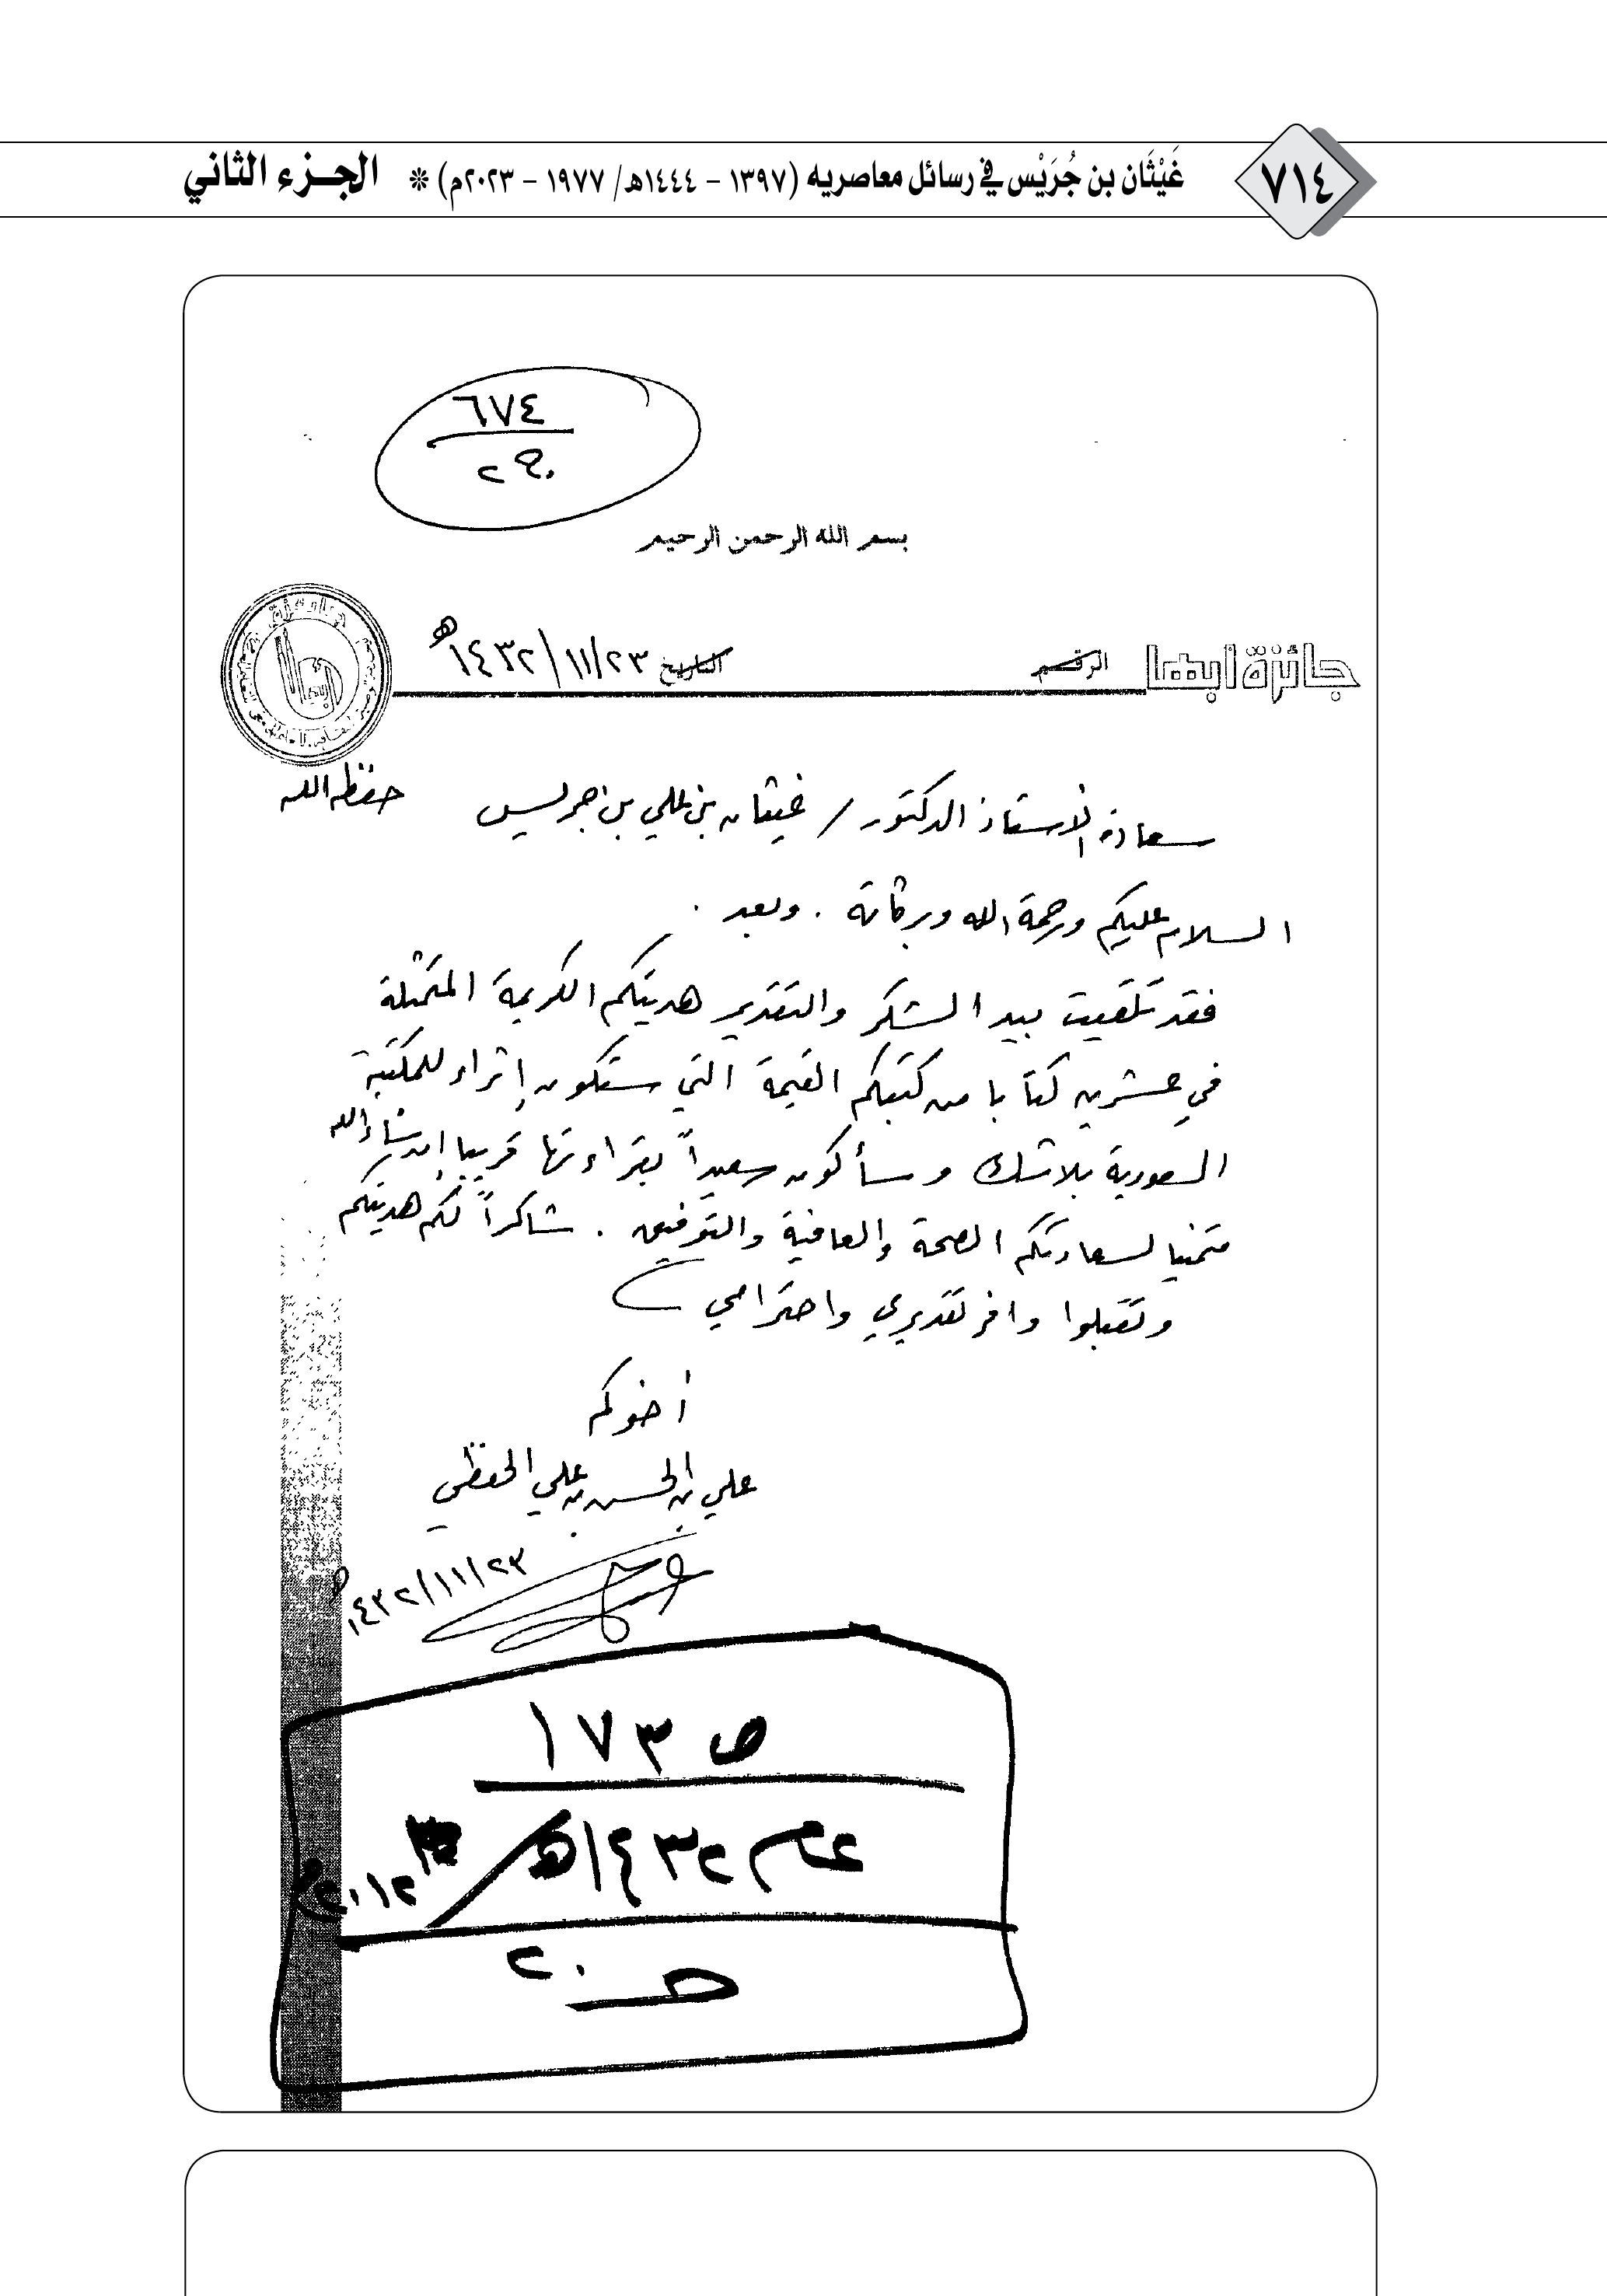 ٧١٤
غَيْثَان بن جُرَيْس في رسائل معاصريه (١٣٩٧ - ١٤٤٤هـ/ ١٩٧٧ - ٢٠٢٣م) * الجـزء الثاني
٦٧٤
بسم الله الرحمن الرحيم
جائزة أبها
الرقم
التاريخ ٢٣/١١/١٤٣٢هـ
سعادة الاستاذ الدكتور / غيثان بن علي بن جريس حفظه الله
السلام عليكم ورحمة الله وبركاته . وبعد .
فقد تلقيت بيد الشكر والتقدير هديتكم الكريمة المتمثلة
في عشرين كتابا من كتبكم القيمة التي ستكون إثراء للمكتبة
السعودية بلا شك وسأكون سعيداً بقراءتها قريبا إن شاء الله
متمنيا لسعادتكم الصحة والعافية والتوفيق . شاكراً لكم هديتكم
وتقبلوا وافر تقديري واحترامي
أخوكم
علي بن الحسن بن علي الحفظي
٢٣/١١/١٤٣٢هـ
ص ١٧٣
عام ١٤٣٢هـ / ٢٠١٢م
حـ ٢٠